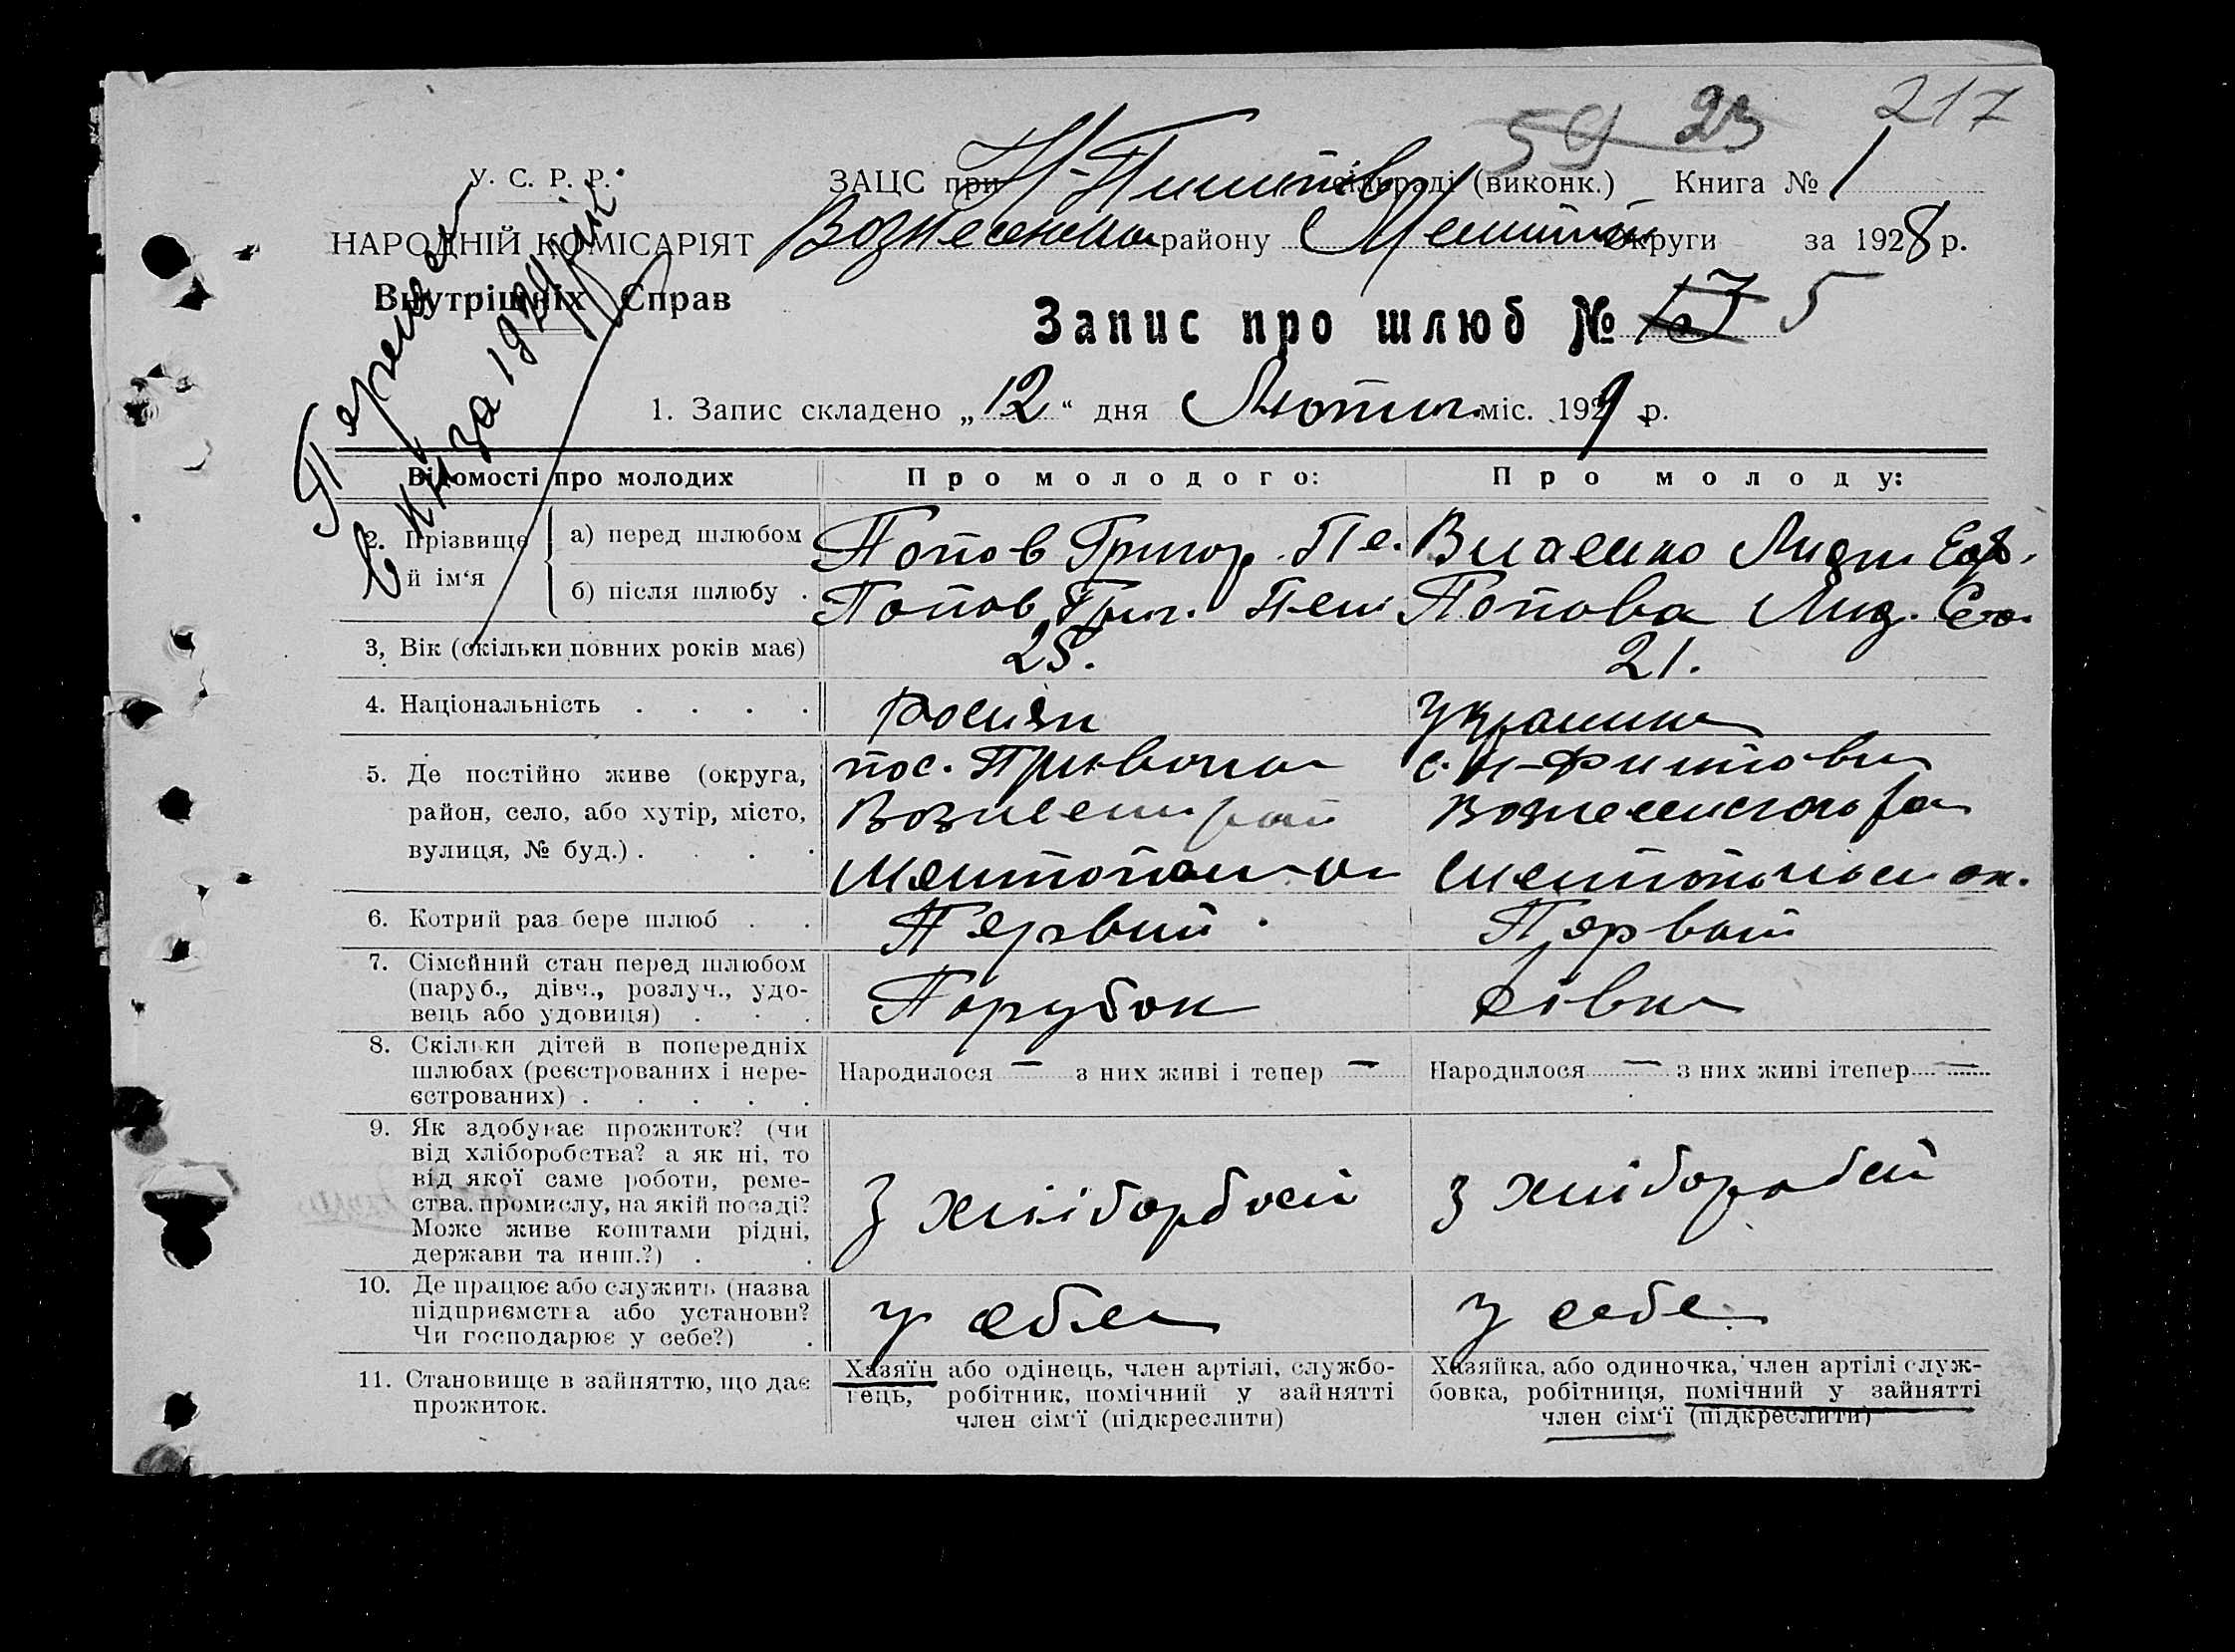 59 23 217
У. С. Р. Р.
ЗАЦС при сільраді (виконк.) Книга № 1
НАРОДНІЙ КОМІСАРІЯТ
району округи за 1928 р.
Внутрішніх Справ
Запис про шлюб № 5
1. Запис складено „12“ дня міс. 1929 р.
за 1929
Відомості про молодих
Про молодого:
Про молоду:
2. Прізвище й ім‘я
а) перед шлюбом
Попов Григор. Пе.
б) після шлюбу .
Попов Григ.
Попова Лид.
3, Вік (скільки повних років має)
25.
21.
4. Національність . . . .
росиян
украинка
5. Де постійно живе (округа,
район, село, або хутір, місто,
вулиця, № буд.) . . . .
пос.
Вознесен рай
Вознесенского ра
6. Котрий раз бере шлюб . .
Первий
Первой
7. Сімейний стан перед шлюбом
(паруб., дівч., розлуч., удо-
вець або удовиця) . . .
Парубок
дівка
8. Скільки дітей в попередніх
шлюбах (реєстрованих і нере-
єстрованих) . . . . .
Народилося — з них живі і тепер —
Народилося — з них живі ітепер —
9. Як здобуває прожиток? (чи
від хліборобства? а як ні, то
від якої саме роботи, реме-
ства, промислу, на якій посаді?
Може живе коштами рідні,
держави та инш.?) . .
З
з
10. Де працює або служить (назва
підприємства або установи?
Чи господарює у себе?) .
у
у себе
11. Становище в зайняттю, що дає
прожиток.
Хазяїн або одінець, член артілі, службо-
вець, робітник, помічний у зайнятті
член сім‘ї (підкреслити)
Хазяйка, або одиночка, член артілі служ-
бовка, робітниця, помічний у зайнятті
член сім‘ї (підкреслити)